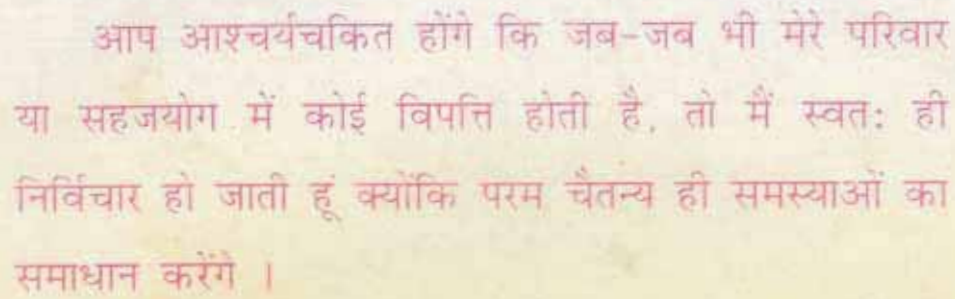 आप आश्चर्यचकित होंगे कि जब-जब भी मेरे परिवार
या सहजयोग में कोई विपत्ति होती है, तो मैं स्वतः ही
निर्विचार हो जाती हूं क्योंकि परम चैतन्य ही समस्याओं का
समाधान करेंगे ।